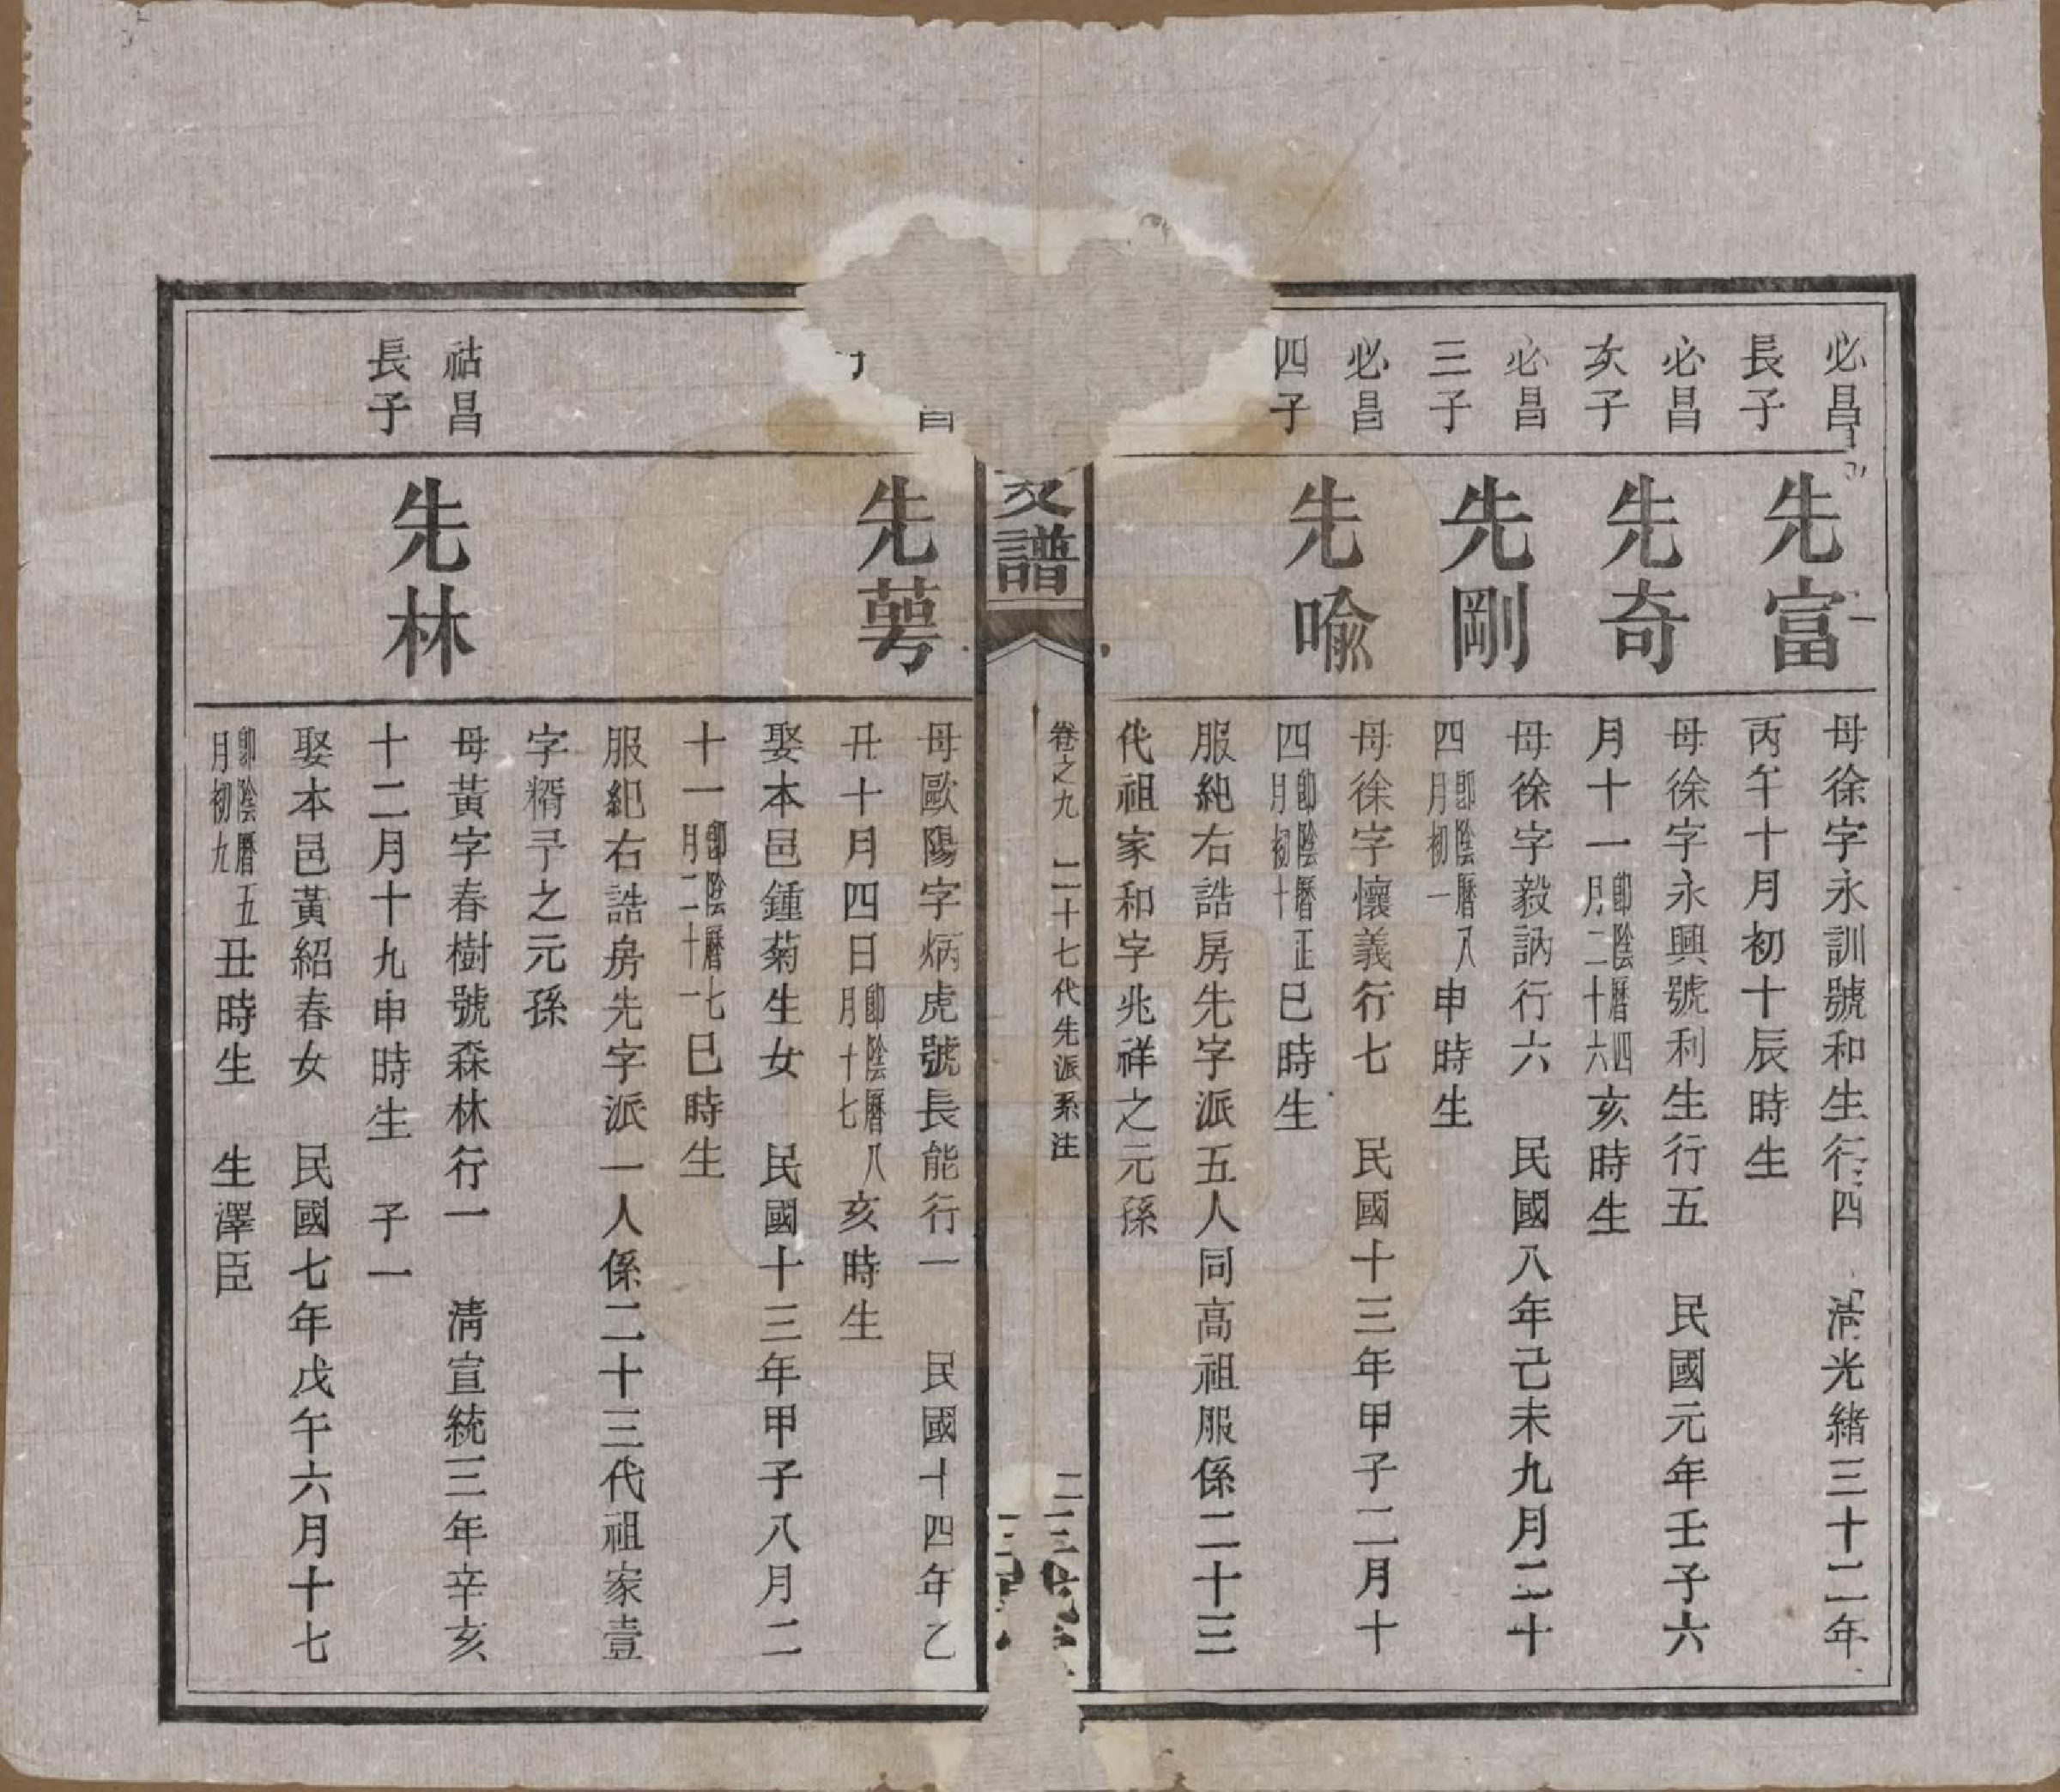 必昌
長子
先富
母徐字永訓號和生行四　清光緒三十二年
丙午十月初十辰時生
必昌
次子
先奇
母徐字永興號利生行五　民國元年壬子六
月十一即陰曆四月二十六亥時生
必昌
三子
先剛
母徐字毅訥行六　民國八年己未九月二十
四即陰曆八月初一申時生
必昌
四子
先喩
母徐字懷義行七　民國十三年甲子二月十
四即陰曆正月初十巳時生
服紀右誥房先字派五人同高祖服係二十三
代祖家和字兆祥之元孫
支譜
卷之九　二十七代先派系注
昌
先萼
母歐陽字炳虎號長能行一　民國十四年乙
丑十月四日即陰曆八月十七亥時生
娶本邑鍾菊生女　民國十三年甲子八月二
十一即陰曆七月二十一巳時生
服紀右誥房先字派一人係二十三代祖家壹
字糈予之元孫
祜昌
長子
先林
母黃字春樹號森林行一　清宣統三年辛亥
十二月十九申時生　子一
娶本邑黃紹春女　民國七年戊午六月十七
即陰曆五月初九丑時生　生澤臣